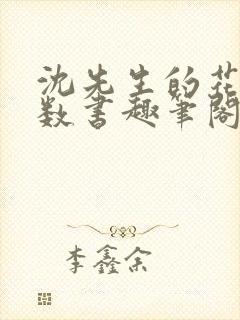 沈先生的花
数书趣笔阁
李鑫余